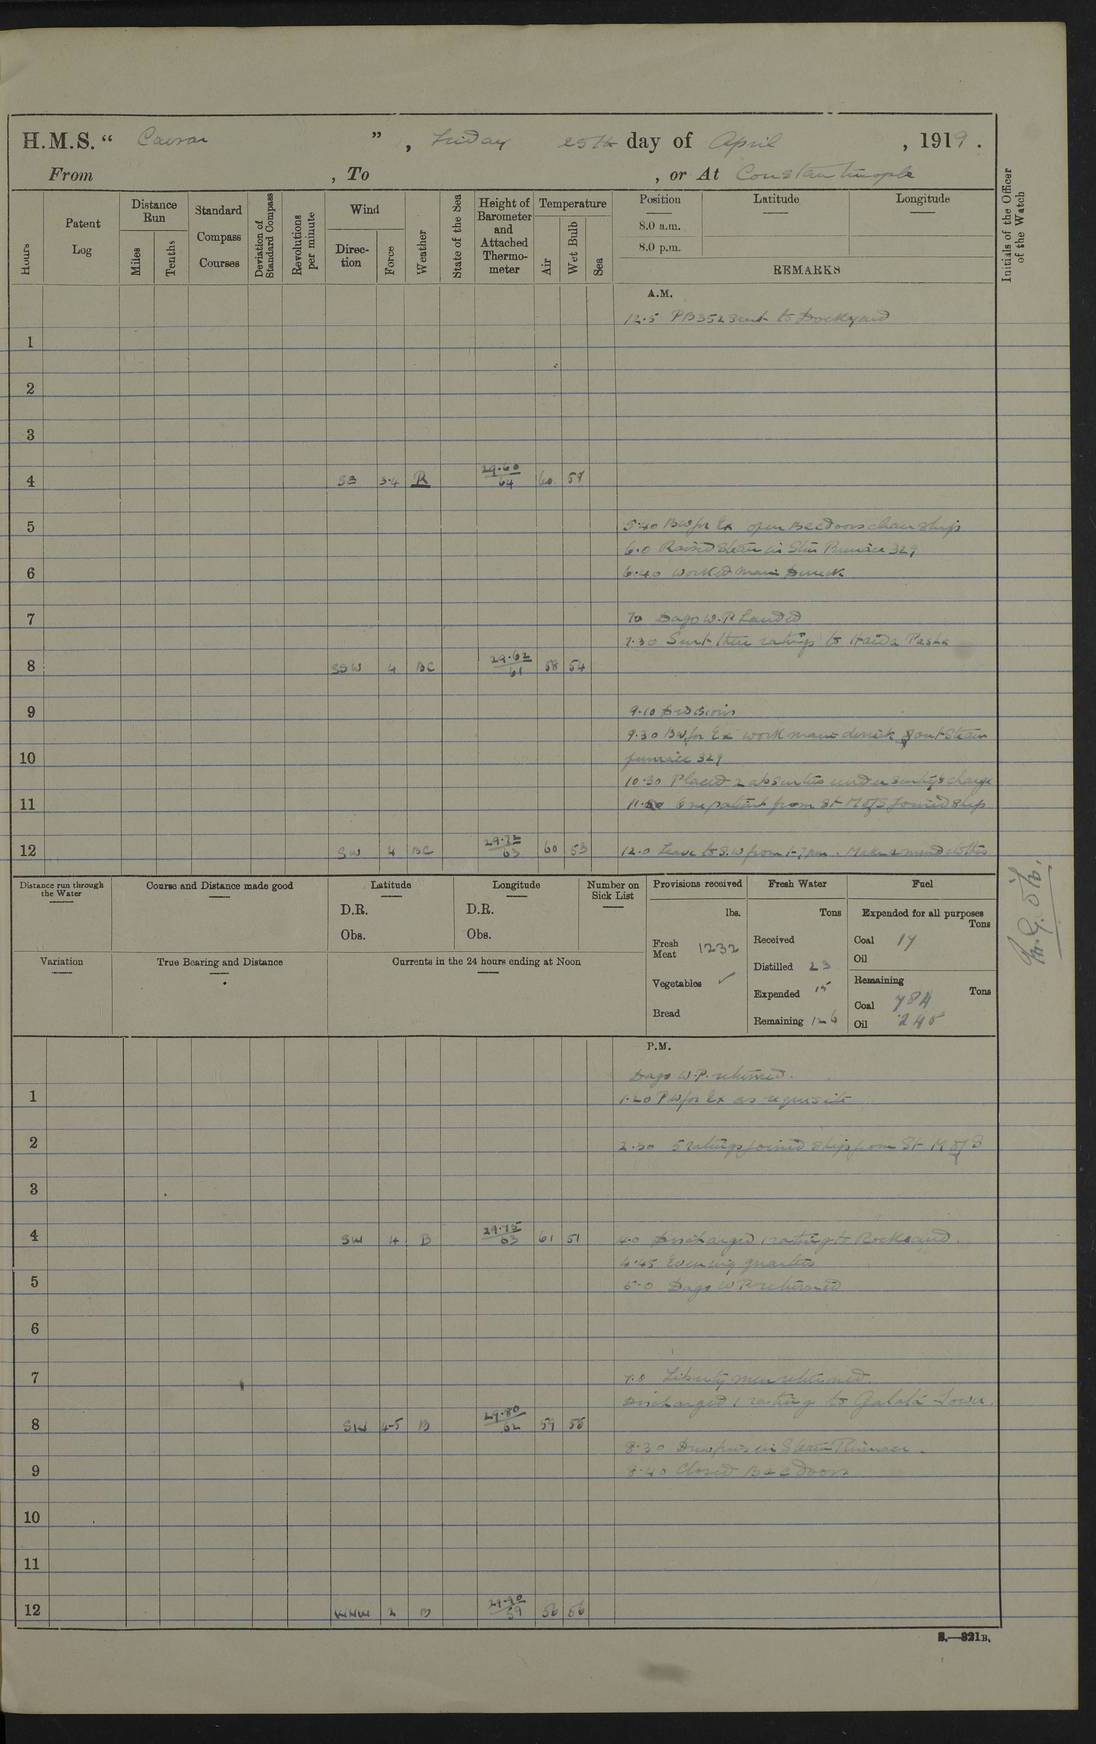 H.M.S. " Caesar ", Friday 25th day of April, 1919.
From , To , or At Constantinople
Hours
Patent Log
Distance Run
Miles
Tenths
Standard Compass Courses
Deviation of Standard Compass
Revolutions per minute
Wind
Direc-tion
Force
Weather
State of the Sea
Height of Barometer and Attached Thermo-meter
Temperature
Air
Wet Bulb
Sea
Position
8.0 a.m.
8.0 p.m.
Latitude
Longitude
REMARKS
Initials of the Officer of the Watch
A.M.
12.5 PB 352 sent to Dockyard
1
2
3
4 SE 3-4 R 29.60 64 60 58
5 5.40 BW for Ex open B & C doors clean ship
6.0 Raised steam in Stm Pinnace 329
6 6.40 Worked main Derrick
7 7.0 Dago W.P. Landed
7.30 Sent three ratings to Haida Pasha
8 SSW 4 BC 29.62 61 58 54
9 9.10 Divisions
9.30 BW for Ex work main derrick & out steam
10 pinnace 329
10.30 Placed 2 absentees under sentry's charge
11 One patient from St M of S Joined ship
12 SW 4 BC 29.72 63 60 53 12.0 Leave to S.W from 1-7 pm. Make & mend clothes
Distance run through the Water
Course and Distance made good
Latitude
D.R.
Obs.
Longitude
D.R.
Obs.
Number on Sick List
Provisions received
lbs.
Fresh Meat 1232
Vegetables ✓
Bread
Fresh Water
Tons
Received
Distilled 23
Expended 15
Remaining 126
Fuel
Expended for all purposes
Tons
Coal 17
Oil
Remaining
Tons
Coal 784
Oil 245
Variation
True Bearing and Distance
Currents in the 24 hours ending at Noon
P.M.
Dago W.P. returned.
1 1.20 PW for Ex as requisite
2 2.30 5 ratings joined ship from St M of S
3
4 SW 4 B 29.75 63 61 51 4.0 Discharged 1 rating to Dockyard.
4.45 Evening quarters
5 5.0 Dago W P returned
6
7 7.0 Liberty men returned.
Discharged 1 rating to Galata Tower.
8 SW 4-5 B 29.80 62 59 55
8.30 Drew fires in Steam Pinnace.
9 8.40 Closed B & C doors
10
11
12 WNW 2 B 29.90 59 56 56
S.—321B.